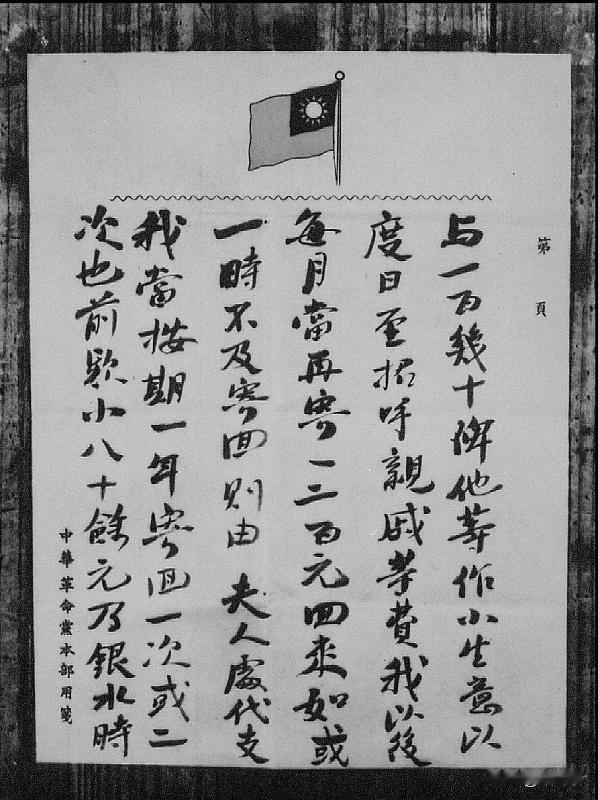 第　頁
与一百幾十俾他等作小生意以
度日至招呼親戚等費我以後
每月當再寄一二百元回來如或
一時不及寄回則由　夫人處代支
我當按期一年寄回一次或二
次也前款小八十餘元乃銀水時
中華革命黨本部用箋